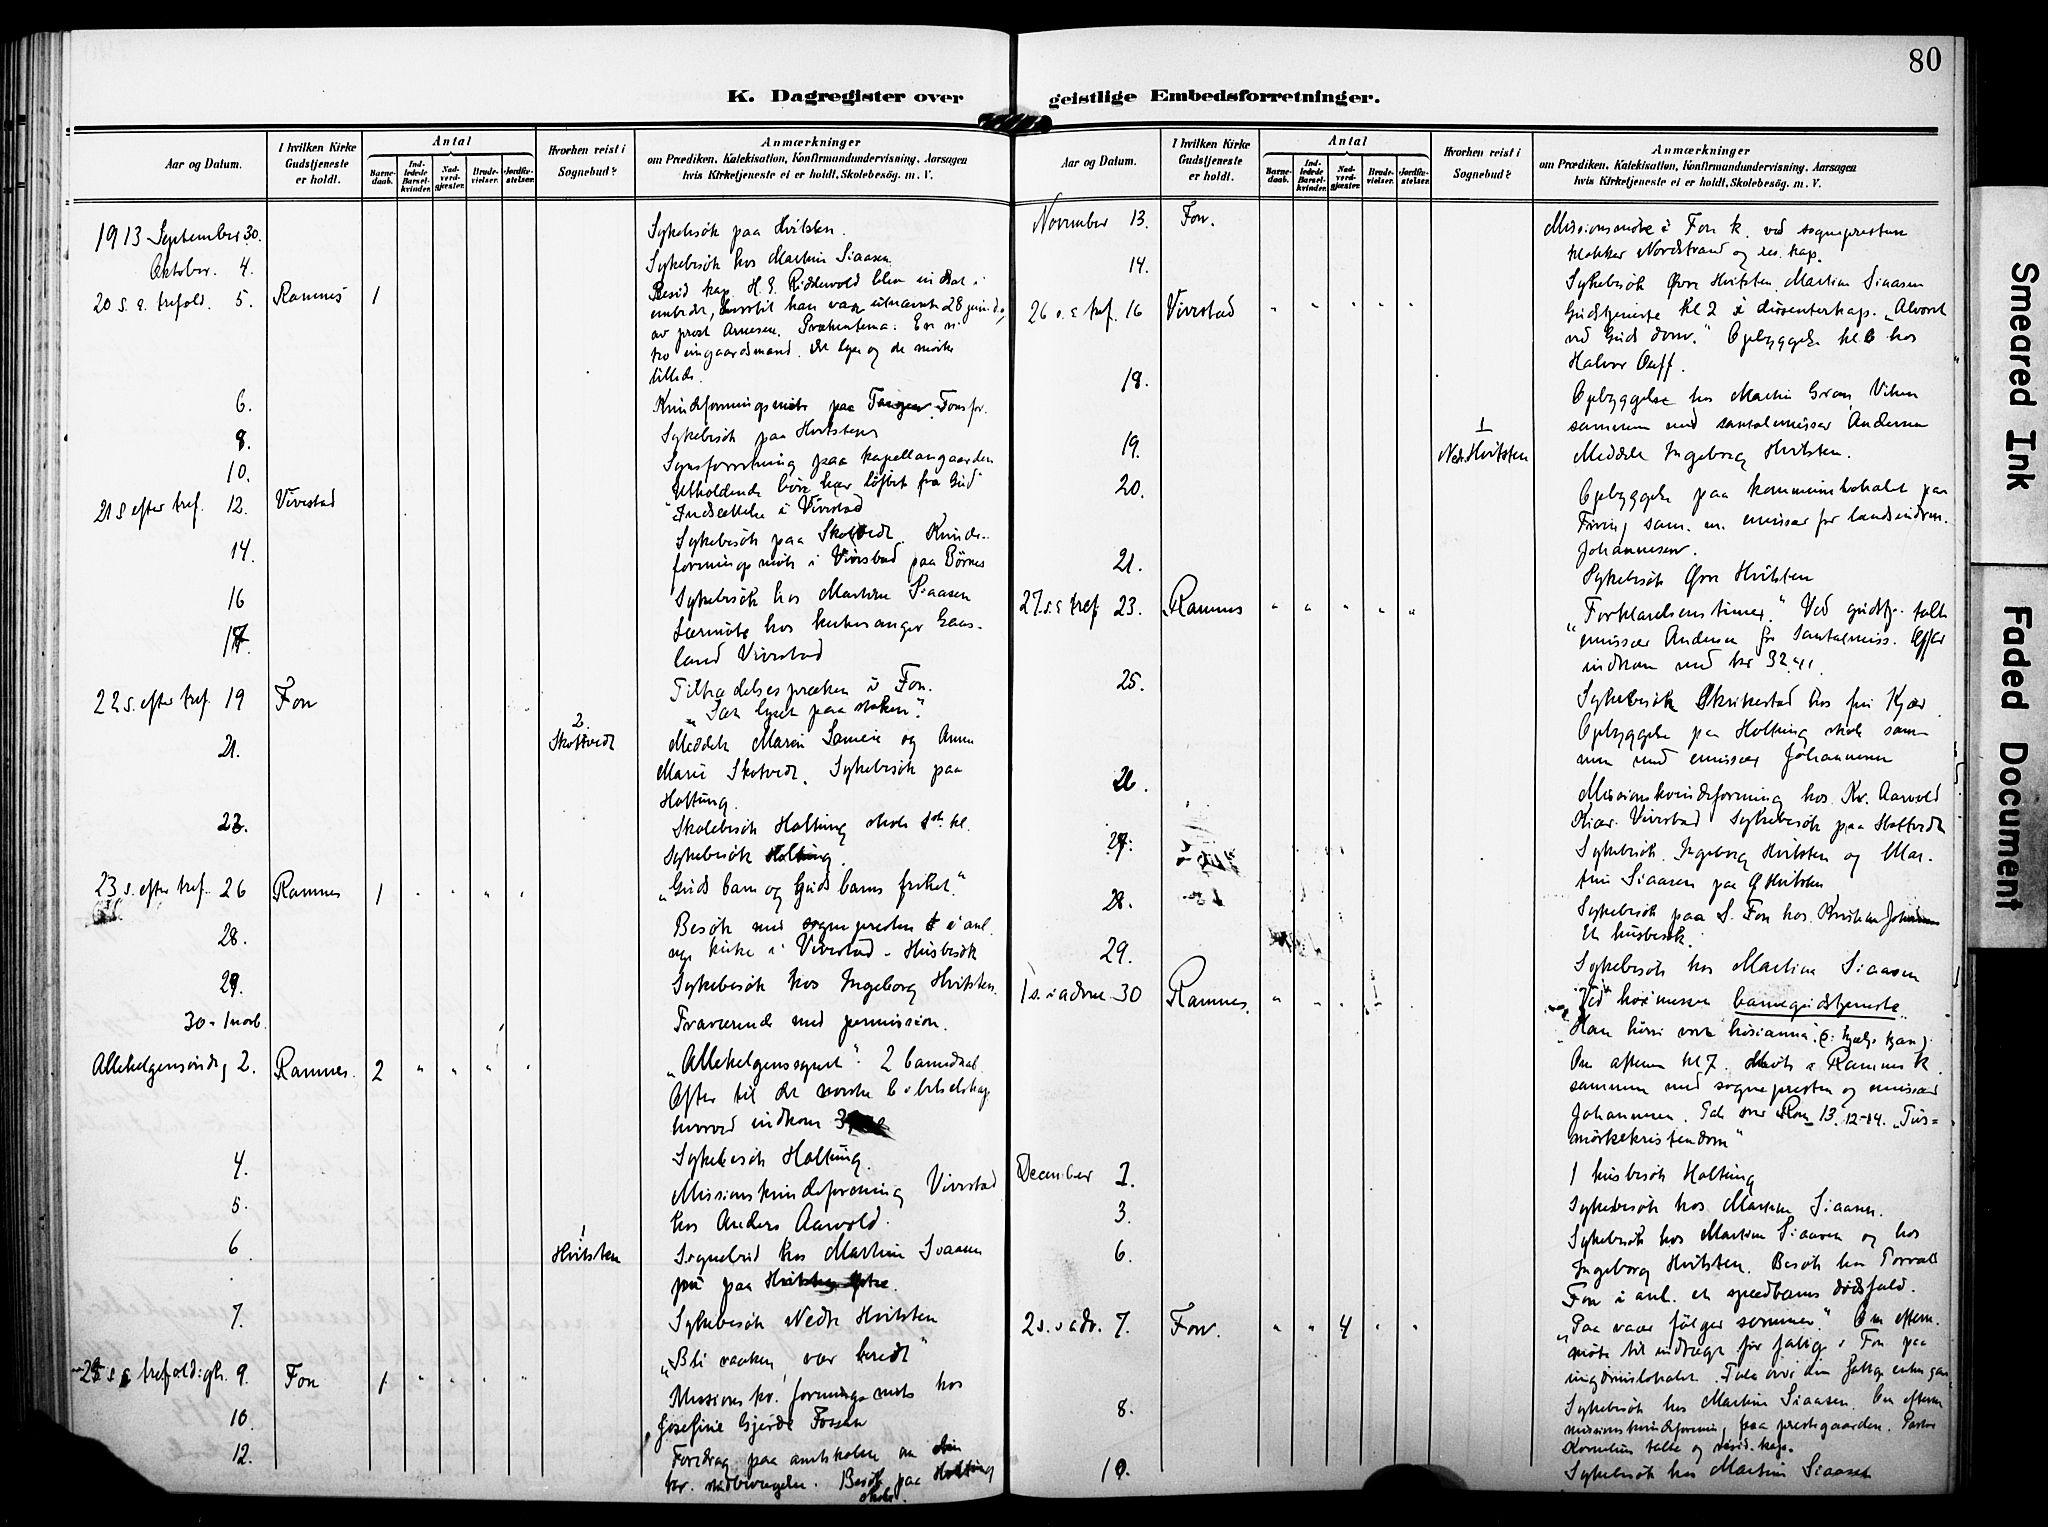 80
K. Dagregister over geistlige Embedsforretninger.
Smeared Ink
Faded Document
Aar og Datum.
I hvilken Kirke Gudstjeneste er holdt.
Antal
Barne-daab.
Ind-ledede Barsel-kvinder.
Nad-verd-gjæster.
Brude-vielser.
Jordfæ-stelser.
Hvorhen reist i Sognebud?
Anmærkninger
om Prædiken, Katekisation, Konfirmandundervisning, Aarsagen
hvis Kirketjeneste ei er holdt, Skolebesøg. m. V.
1913 September 30. Sykebesök paa Hvitsten.
Oktober. 4. Sykebesök hos Martin Siaasen.
20 s. e. trefold. 5. Ramnes 1 Resid. kap. H. E. Ridderwold blev indsat i
embedet, hvortil han var utnævnt 28 juni d.
av prost Arnesen.
vingaardsmand. Det lyse og de mörke
billede.
6. Kvindeforeningsmöte paa Fonsfor.
8. Sykebesök paa Hvitsten
10. Synsforretning paa kapellangaarden
21 s efter tref. 12. Vivestad Utholdende bön har löfter fra Gud
Indsættelse i Vivestad
14. Sykebesök paa Skotvedt. Kvinde-
foreningsmöte i Vivestad paa Börnes
16 Sykebesök hos Martin Siaasen
17. hos kirkesanger Gaas-
land Vivestad
22 s. efter tref. 19 Fon Tiltrædelsespræken i Fon.
"Sæt lyset paa staken".
21. 2. Skottvedt Meddelt Maren og Anna
Marie Skotvedt. Sykebesök paa
Holtung.
22. Skolebesök Holtung skole kl.
Sykebesök Holtung.
23 s. efter tref. 26 Ramnes 1 " " " " "Guds barn og Guds barns frihet."
28. Besök med sognepresten i anl.
ny kirke i Vivestad - Husbesök
29. Sykebesök hos Ingeborg Hvitsten.
30 - 1 novb. Fraværende med permission.
Allehelgensönd. 2. Ramnes. 2 " " " " "Allehelgenssynet". 2 barnedaab.
Offer til det norske bibelselskap
hvorved indkom
4. Sykebesök Holtung.
5. Missionskvindeforening Vivestad
hos Anders Aarvold.
6 1 Hvitsten Sognebud hos Martin Siaasen
paa
7. Sykebesök Nedre Hvitsten
25 s e trefoldigh. 9. Fon 1 " " " " "Bli vaaken, vær beredt"
10. Missions kv. forenings möte hos
Josefine Gjerde Fossan
12. Foredrag paa amtskolen om
Besök paa Holtung
skole.
Aar og Datum.
I hvilken Kirke Gudstjeneste er holdt.
Antal
Barne-daab.
Ind-ledede Barsel-kvinder.
Nad-verd-gjæster.
Brude-vielser.
Jordfæ-stelser.
Hvorhen reist i Sognebud?
Anmærkninger
om Prædiken, Katekisation, Konfirmandundervisning, Aarsagen
hvis Kirketjeneste ei er holdt, Skolebesøg. m. V.
November 13. Fon. Missionsmöte i Fon k. ved sognepresten
klokker Nordstrand og res. kap.
14. Sykebesök Övre Hvitsten, Martin Siaasen
26 s. e tref. 16 Vivestad " " " " " Gudstjeneste kl 2 i dissenterkap. "Alvoret
ved Guds dom." Opbyggelse kl. 6 hos
Halvor
18. Opbyggelse hos Martin Gran, Viken
sammen med santalemissær Andersen
19. 1 Nedr. Hvitsten Meddelt Ingeborg Hvitsten.
20. Opbyggelse paa kommunelokalet paa
sam. m. emissær for landsindrem.
Johannesen.
21. Sykebesök Övre Hvitsten
27. s. e tref 23. Ramnes " " " " " "Forklarelsens timer." Ved gudstj. talte
emissær Andersen for Santalmiss. Offer
indkom med kr 32.41.
25. Sykebesök hos fru Kjær.
Opbyggelse paa Holtung skole sam-
men med emissær Johannesen
26. Missionskvindeforening hos Kr. Aarvold
Kiær. Vivestad Sykebesök paa Skottvedt
27. Sykebesök. Ingeborg Hvitsten og Mar-
tin Siaasen paa Ö Hvitsten
28. Sykebesök paa S. Fon hos Kristian
Et husbesök.
29. Sykebesök hos Martin Siaasen
1 s. i advent 30 Ramnes. " " " " " Ved höimessen barnegudstjeneste.
Om aftenen kl 7. Möte i Ramnes K.
sammen med sognepresten og emissær
Johannesen. Rom 13. 12-14. "Tus-
mörkekristendom"
December 2. 1 husbesök Holtung
3. Sykebesök hos Martin Siaasen.
6. Sykebesök hos Martin Siaasen og hos
Ingeborg Hvitsten. Besök hos Torvald
Fon i anl. et spædbarns dödsfald.
2 s. i adv. 7. Fon. " " 4 " " "Paa vaar fölger sommer". Om efterm.
möte til indtægt for fattig i Fon paa
ungdomslokalet.
8. Sykebesök hos Martin Siaasen. Om efterm
missionskvindeforening paa prestegaarden. Pastor
Kornelius talte og resid. kap.
10. Sykebesök hos Martin Siaasen